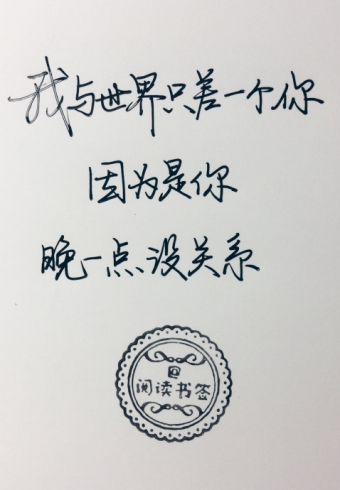 我与世界只差一个你
因为是你
晚一点没关系
@
阅读书签